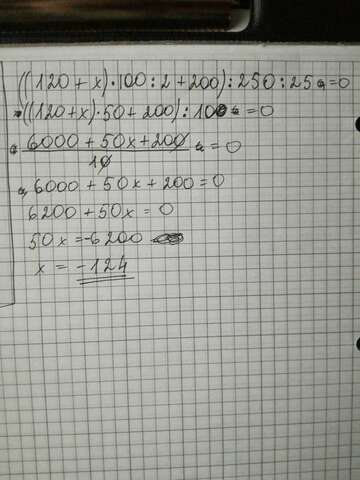 ((120 + x) · 100 : 2 + 200) : 250 : 25 = 0
((120 + x) · 50 + 200) : 10 = 0
6000 + 50x + 200 = 0
10
6000 + 50x + 200 = 0
6200 + 50x = 0
50x = -6200
x = -124